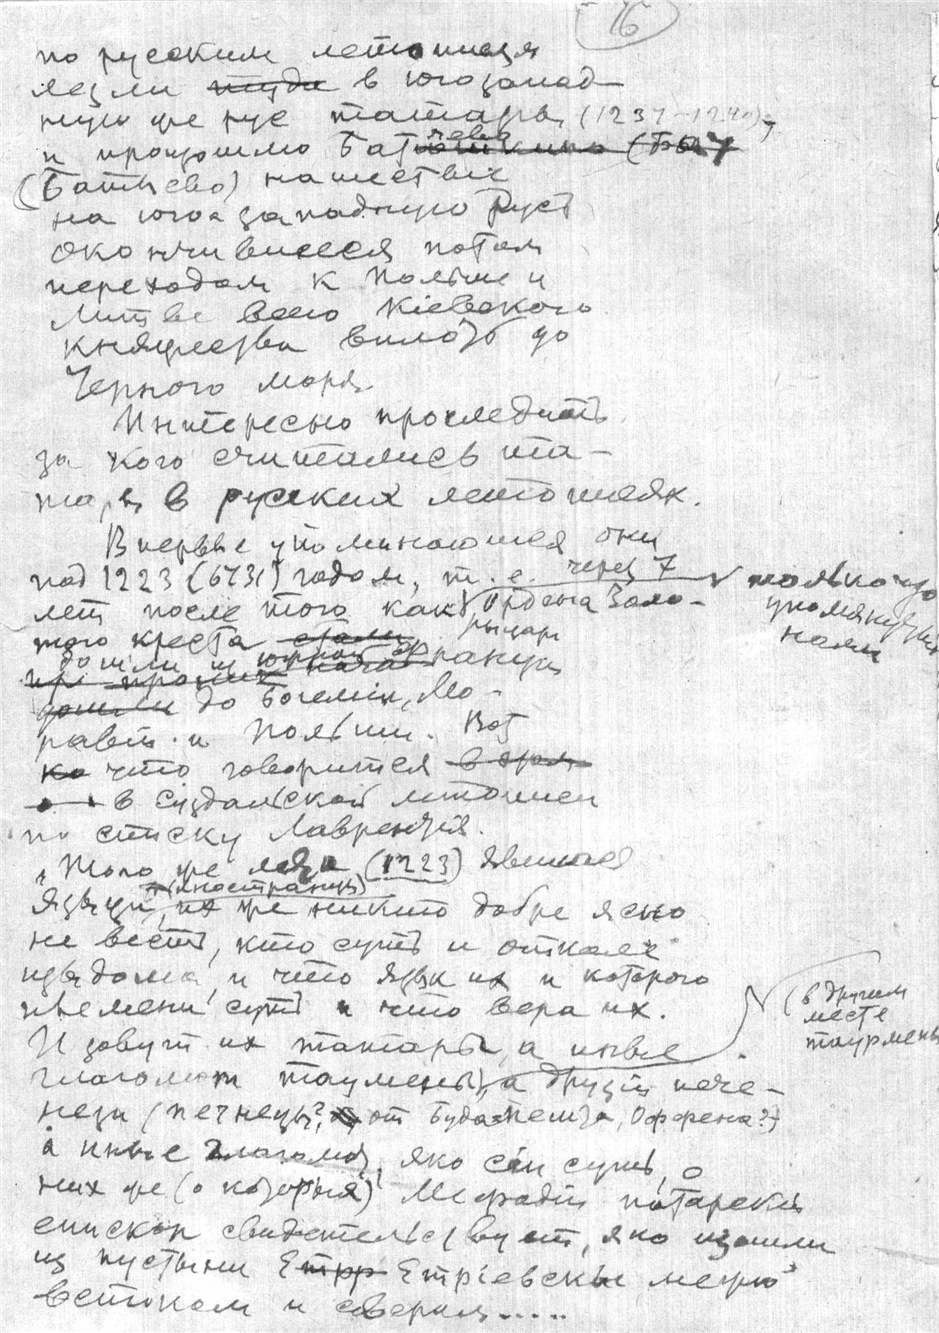 16
по русским летописям
лезли туда в югозапад-
ную же Русь татары (1237-1240),
и произошло Батыево
(Батыево) нашествие
на юго западную Русь
окончившееся потом
переходом к Польше и
Литве всего Кiевского
княжества вплоть до
Черного моря
Интересно проследить
за кого считались та-
тары в русских летописях.
Впервые упоминаются они
под 1223 (6731) годом, т. е. через 7
лет после того как ордена Золо-
только что упомянутые нами
того креста стали рыцари
дошли из южной Францiи
дошли до Богемiи, Мо-
равiи и Польши. Вот
что говорится
в Суздальской летописи
по списку Лаврентiя.
„Того же лета (1223) явишася
языци (иностранцы), их же никто добре ясно
не весть, кто суть и отколе
изыдоша, и что язык их и которого
племени суть и что вера их.
И зовут их татары, а иные
глаголют таумены, а друзiи пече-
(в другом месте таурмены)
нези (печнецы? от Будапешта, Оффена?)
а иные глаголют, яко сiи суть, о
них же (о которых) Мефодiй патарскiй
епископ свидетельствует, яко изошли
из пустыни Етрiевскы межю
встоком и севером.....